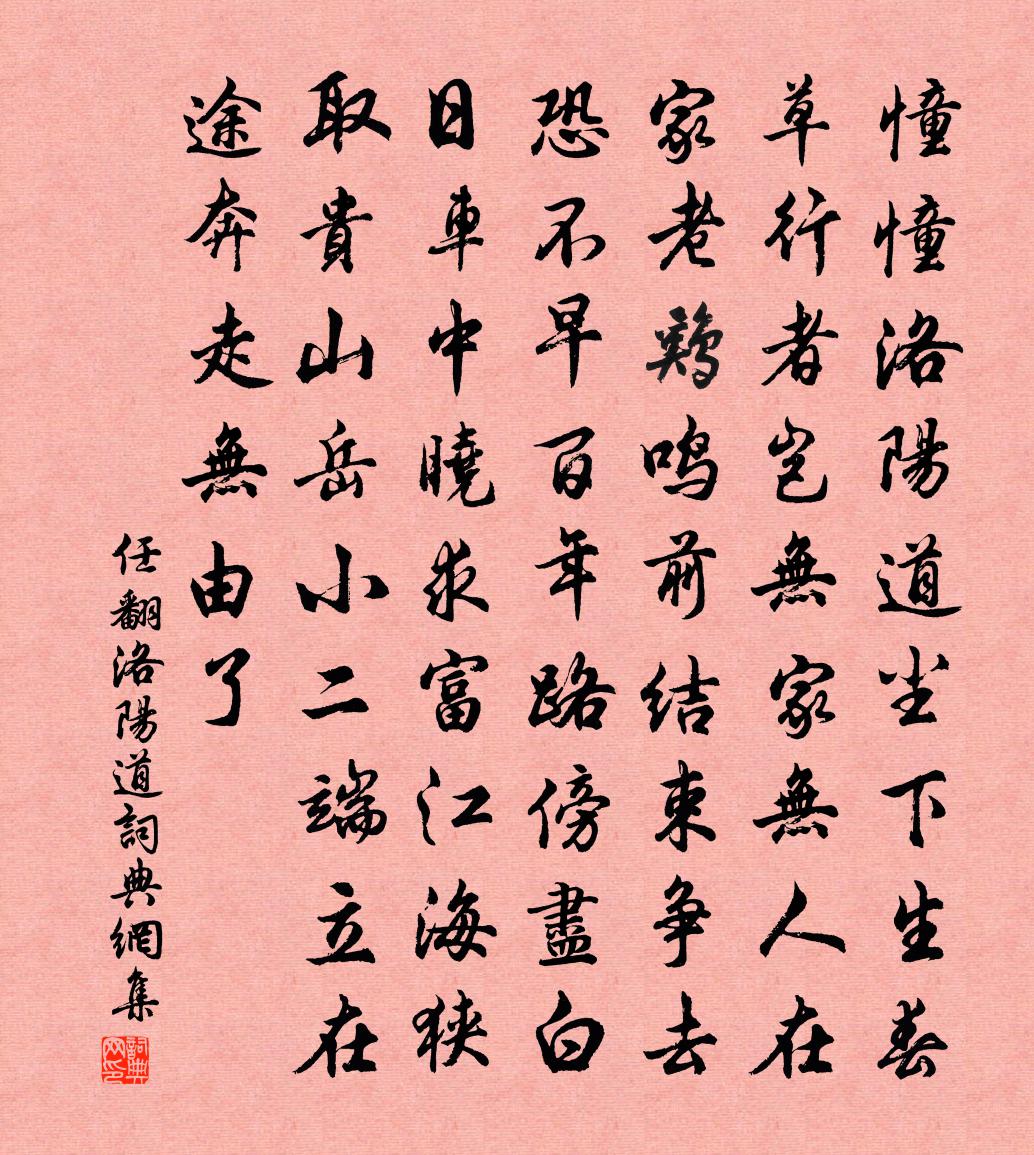 憧憧洛陽道尘下生春
草行者岂無家無人在
家老鷄鸣前结束争去
恐不早百年路傍盡白
日車中曉求富江海狹
取貴山岳小二端立在
途奔走無由了
任翻洛陽道詞典網集
詞典网印